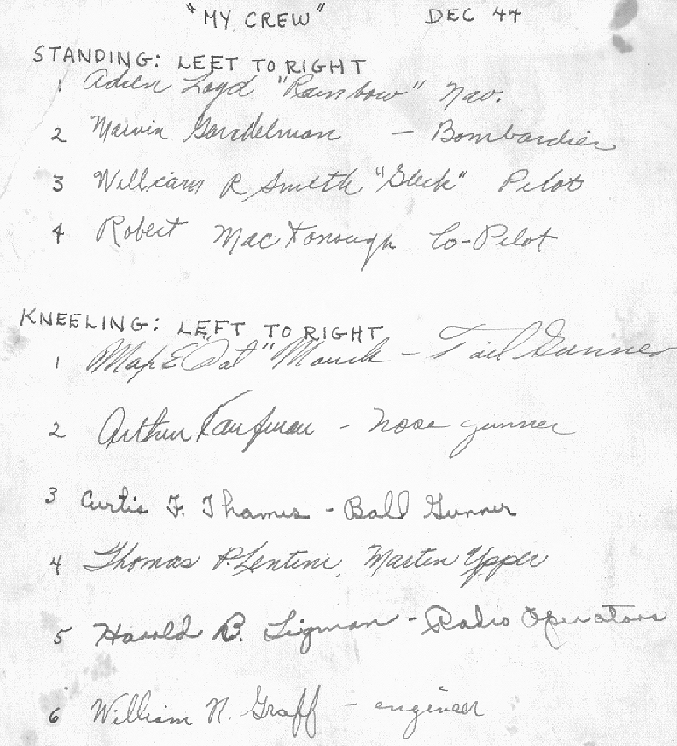 "MY CREW" DEC 44
STANDING: LEFT TO RIGHT
1 Adien Loyd "Rainbow" Nav.
2 Marvin Gendelman - Bombardier
3 William R Smith "Pilot
4 Robert MacDonough Co-Pilot
KNEELING: LEFT TO RIGHT
1 Max E - Tail Gunner
2 Arthur Kaufman - nose gunner
3 Curtis F. Thames - Ball Gunner
4 Thomas P. Lentini, Martin Upper
5 Harold B. Sigman - Radio Operators
6 William N. Graff - engineer